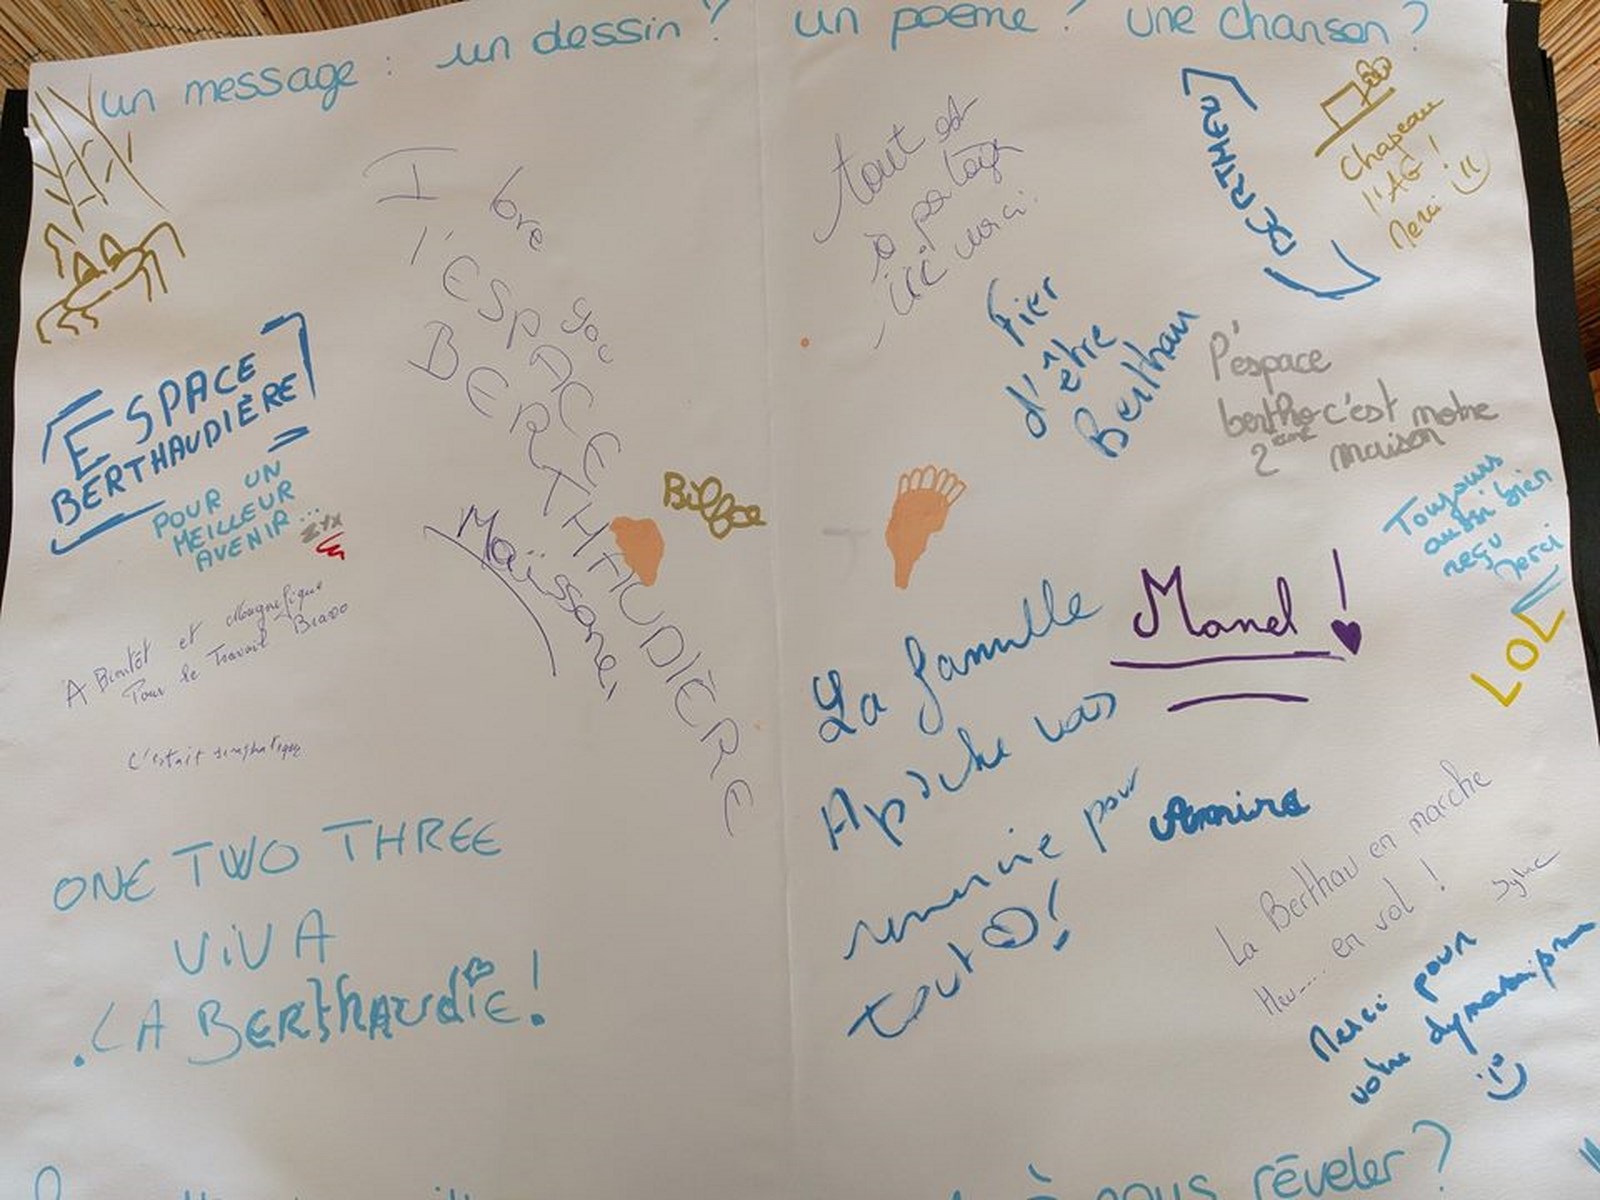 un message : un dessin ? un poème ? une chanson ?
I love
l'ESPACE
BERTHAUDIÈRE
Maïssane
ESPACE
BERTHAUDIÈRE
POUR UN
MEILLEUR
AVENIR...
A Bientôt et Magnefique
Pour le Travail Bravo
C'était
ONE TWO THREE
ViVA
LA BERthAUdiE!
tout est
à partager
ici merci.
Chapeau
l'AG !
Merci
Fier
d'être
Berthau
l'espace
bertho c'est notre
2ème maison
Toujours
aussi bien
reçu
Merci
LOL
Manel !
La famille
vous
remercie pour
tout !
Amira
La Berthau en marche
Heu.... en vol !
Sylvie
Merci pour
votre
à nous rêveler ?